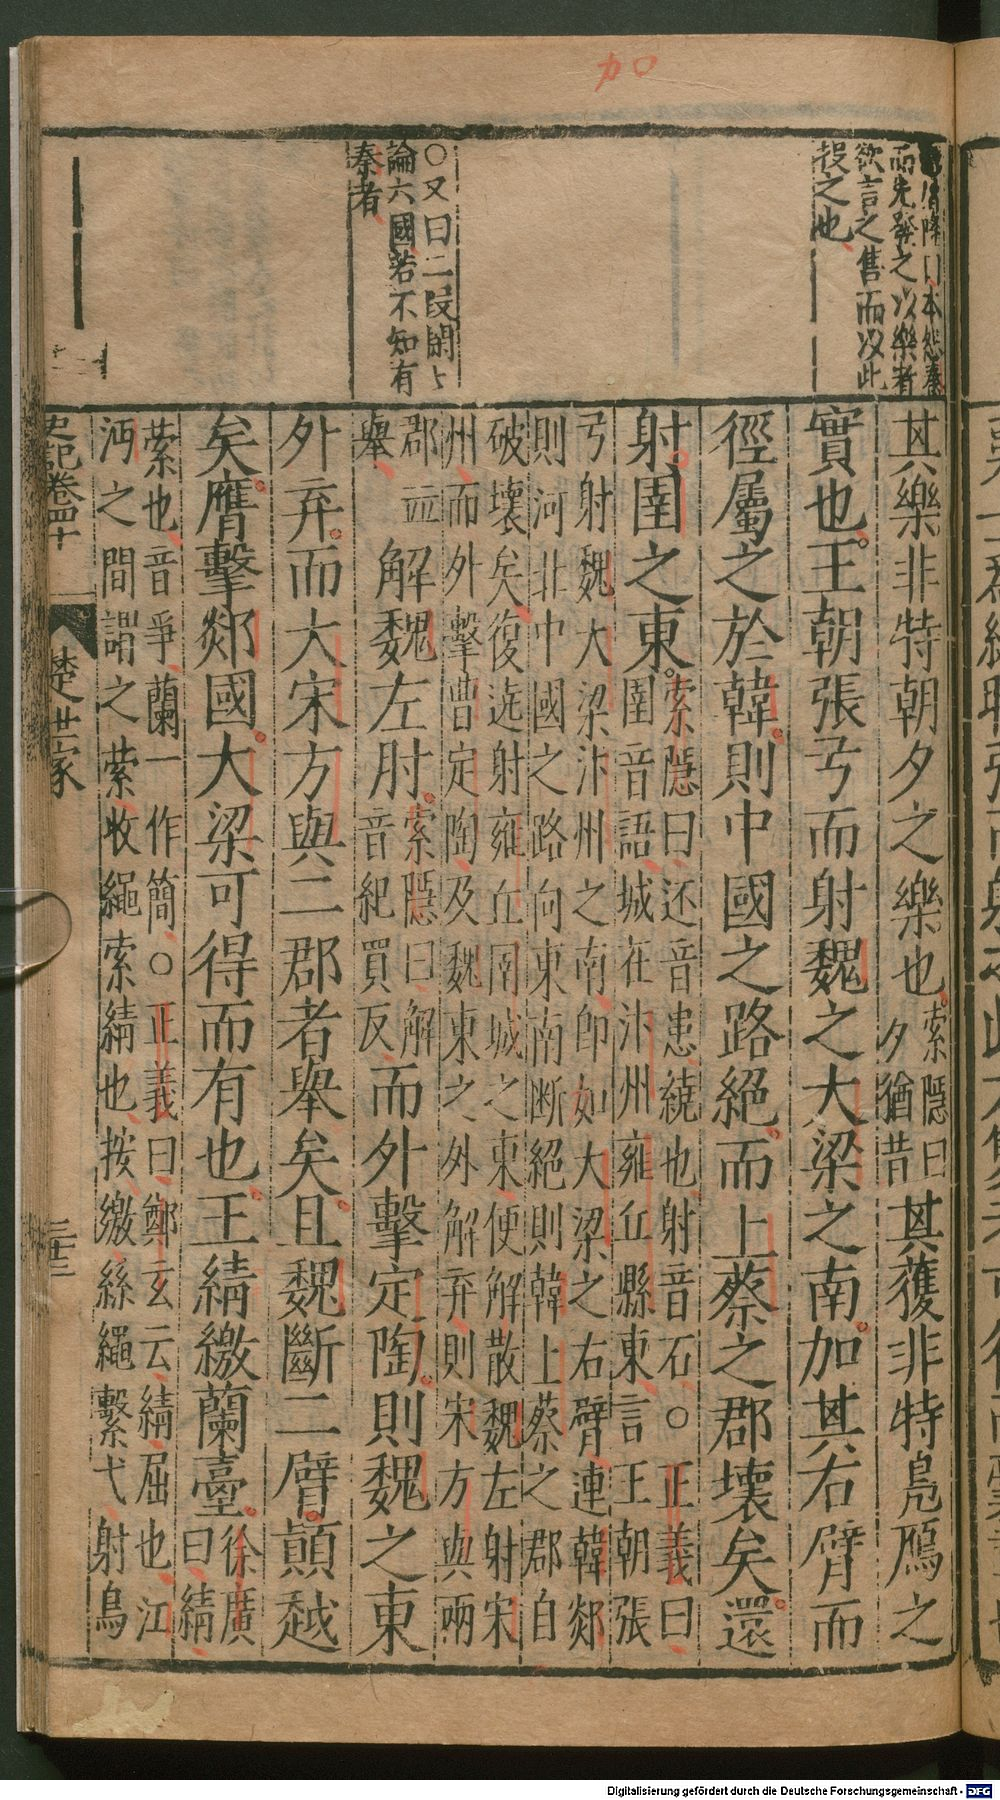 加
而先發之以樂者
欲言之售而以此
投之也
○又曰二段閒上
論六國若不知有
秦者
其樂非特朝夕之樂也索隱曰夕猶昔其獲非特鳧鴈之
實也王朝張弓而射魏之大梁之南加其右臂而
徑屬之於韓則中國之路絕而上蔡之郡壞矣還
射圉之東索隱曰还音患繞也射音石○正義曰
圉音語城在汴州雍丘縣東言王朝張
弓射魏大梁汴州之南即如大梁之右臂連韓郯
則河北中國之路向東南断絕則韓上蔡之郡自
破壞矣復迯射雍丘圉城之東便解散魏左射宋
州而外擊曹定陶及魏東之外解弃則宋方與兩
郡並
舉解魏左肘索隱曰解
音紀買反而外擊定陶則魏之東
外弃而大宋方與二郡者舉矣且魏斷二臂顛越
矣膺擊郯國大梁可得而有也王綪繳蘭臺徐廣
曰綪
縈也音爭蘭一作簡○正義曰鄭玄云綪屈也江
沔之間謂之縈收繩索綪也按繳絲繩繫弋射鳥
史記卷四十
楚世家
三十三
Digitalisierung gefördert durch die Deutsche Forschungsgemeinschaft - DFG